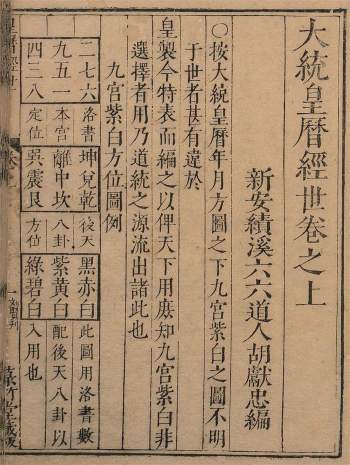 大統皇曆經世卷之上
新安績溪六六道人胡獻忠編
○按大統皇曆年月方圖之下九宮紫白之圖不明
于世者甚有違於
皇製今特表而編之以俾天下用庶知九宮紫白非
選擇者用乃道統之源流出諸此也
九宮紫白方位圖例
二七六 洛書 坤兌乾 後天 黑赤白 此圖用洛書數
九五一 本宮 離中坎 八卦 紫黃白 配後天八卦以
四三八 定位 巽震艮 方位 綠碧白 入用也